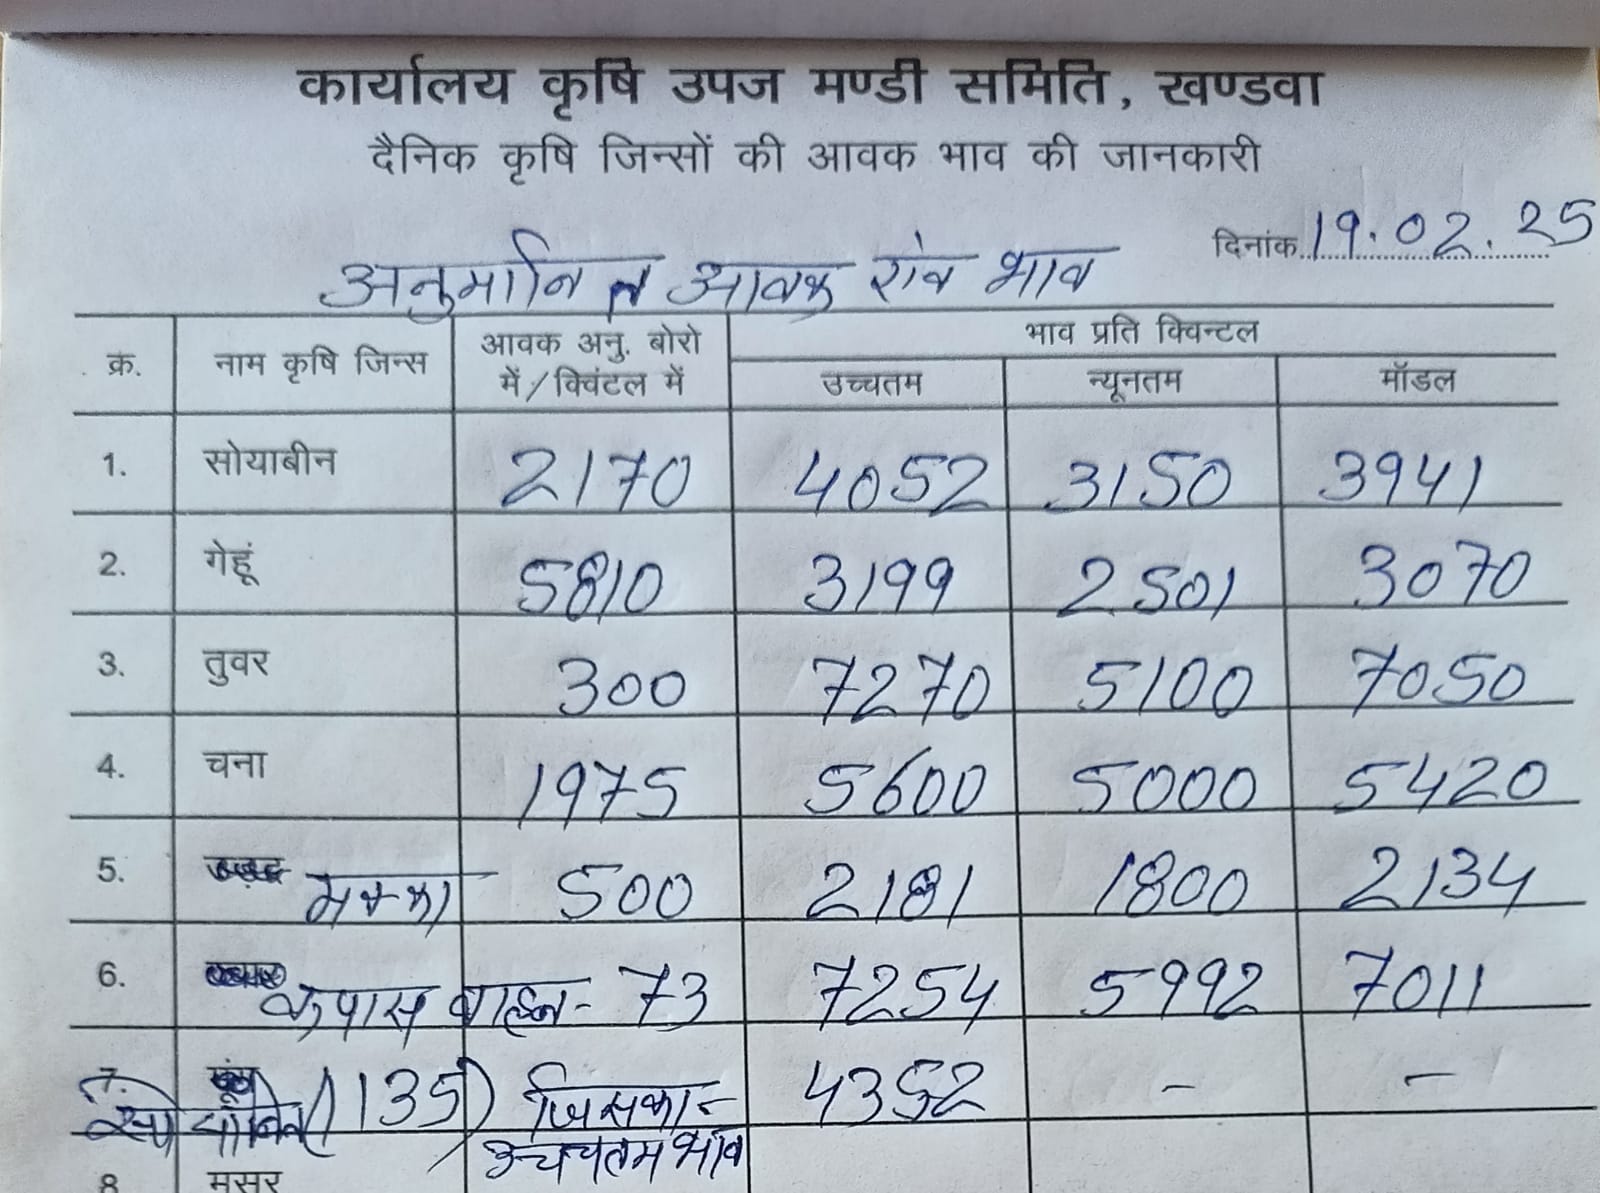 कार्यालय कृषि उपज मण्डी समिति, खण्डवा
दैनिक कृषि जिन्सों की आवक भाव की जानकारी
दिनांक 19.02.25
अनुमानित आवक एवं भाव
क्र. नाम कृषि जिन्स आवक अनु. बोरो में/क्विंटल में भाव प्रति क्विन्टल
उच्चतम न्यूनतम मॉडल
1. सोयाबीन 2170 4052 3150 3941
2. गेहूं 5810 3199 2501 3070
3. तुवर 300 7270 5100 7050
4. चना 1975 5600 5000 5420
5. मक्का 500 2181 1800 2134
6. कपास वाहन- 73 7254 5992 7011
7. (135) जिसका = 4352 - -
उच्चतम भाव
8 मसूर